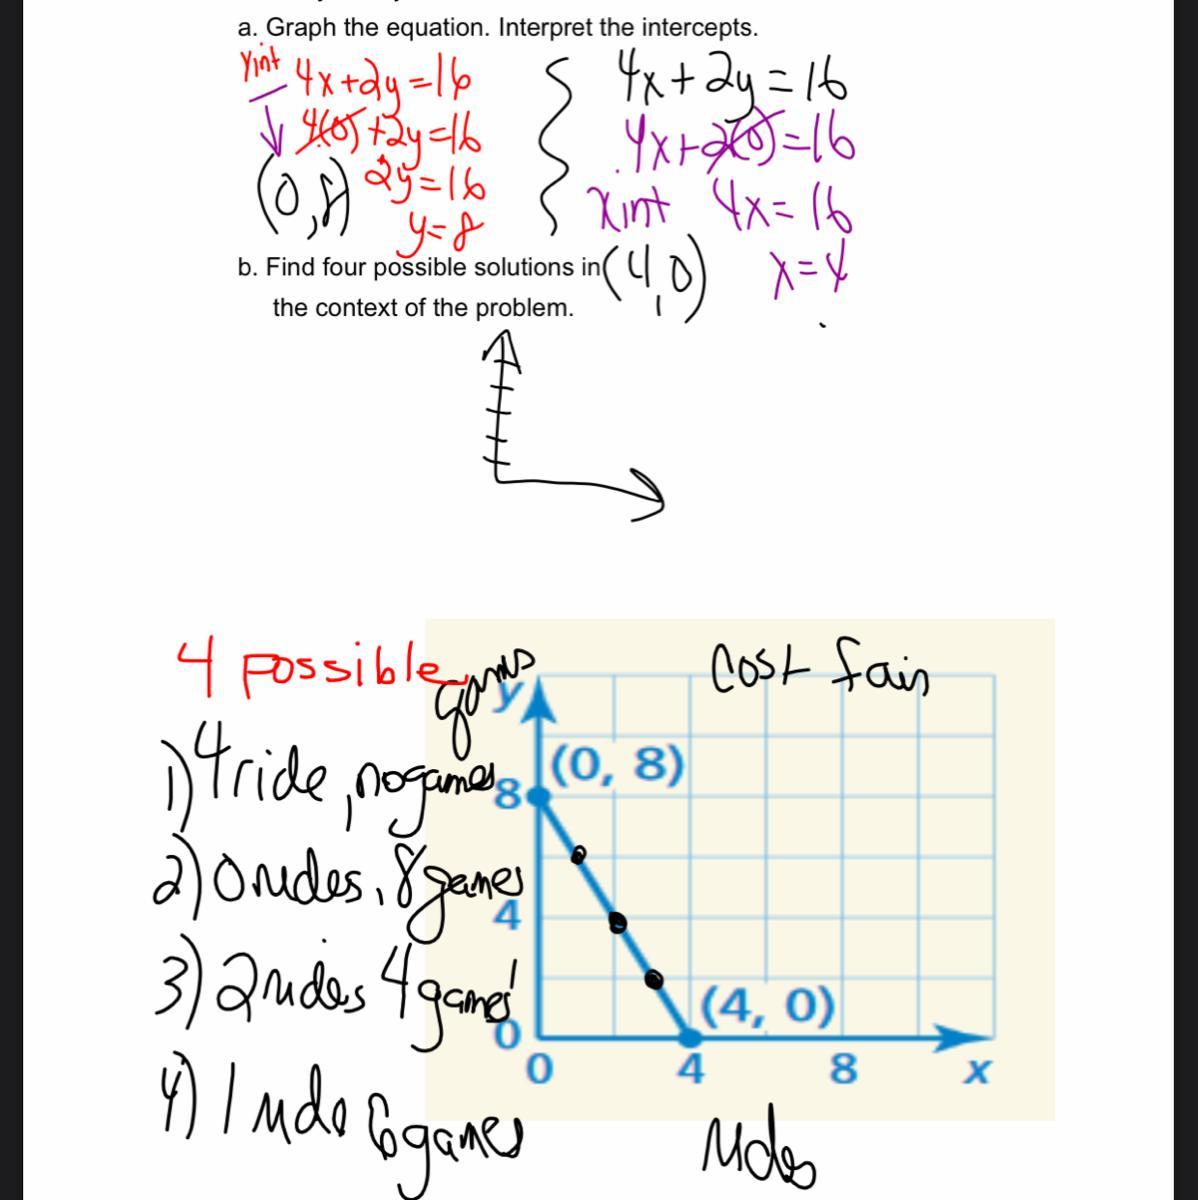 a. Graph the equation. Interpret the intercepts.
Yint 4x+2y=16
4(0)+2y=16
2y=16
(0,8)
y=8
4x+2y=16
4x+2(0)=16
xint 4x=16
(4,0) x=4
b. Find four possible solutions in
the context of the problem.
4 possible
1) 4 ride, no games
2) 0 rides, 8 games
3) 2 rides 4 games
4) 1 ride 6 games
games
y
Cost fair
(0, 8)
8
4
0
(4, 0)
0 4 8 x
rides